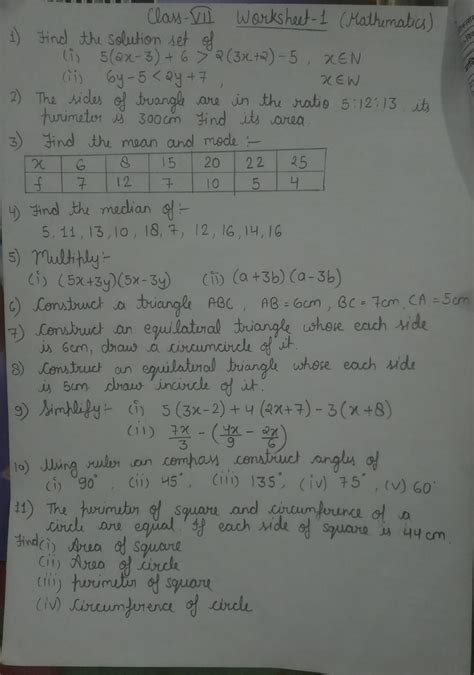 Class-VII Worksheet-1 (Mathematics)
1) Find the solution set of
(i) 5(2x-3)+6 > 2(3x+2)-5, x∈N
(ii) 6y-5<2y+7, x∈W
2) The sides of triangle are in the ratio 5:12:13 its
perimeter is 300cm Find its area.
3) Find the mean and mode:-
x 6 8 15 20 22 25
f 7 12 7 10 5 4
4) Find the median of:-
5, 11, 13, 10, 18, 7, 12, 16, 14, 16
5) Multiply:-
(i) (5x+3y)(5x-3y) (ii) (a+3b)(a-3b)
6) Construct a triangle ABC, AB=6cm, BC=7cm, CA=5cm
7) Construct an equilateral triangle whose each side
is 6cm, draw a circumcircle of it.
8) Construct an equilateral triangle whose each side
is 5cm draw incircle of it.
9) Simplify:- (i) 5(3x-2)+4(2x+7)-3(x+8)
(ii) 7x/3 - (4x/9 - 2x/6)
10) Using ruler an compass construct angles of
(i) 90° , (ii) 45° , (iii) 135° , (iv) 75° , (v) 60°
11) The perimeter of square and circumference of a
circle are equal. If each side of square is 44cm.
Find (i) Area of square
(ii) Area of circle
(iii) perimeter of square
(iv) Circumference of circle